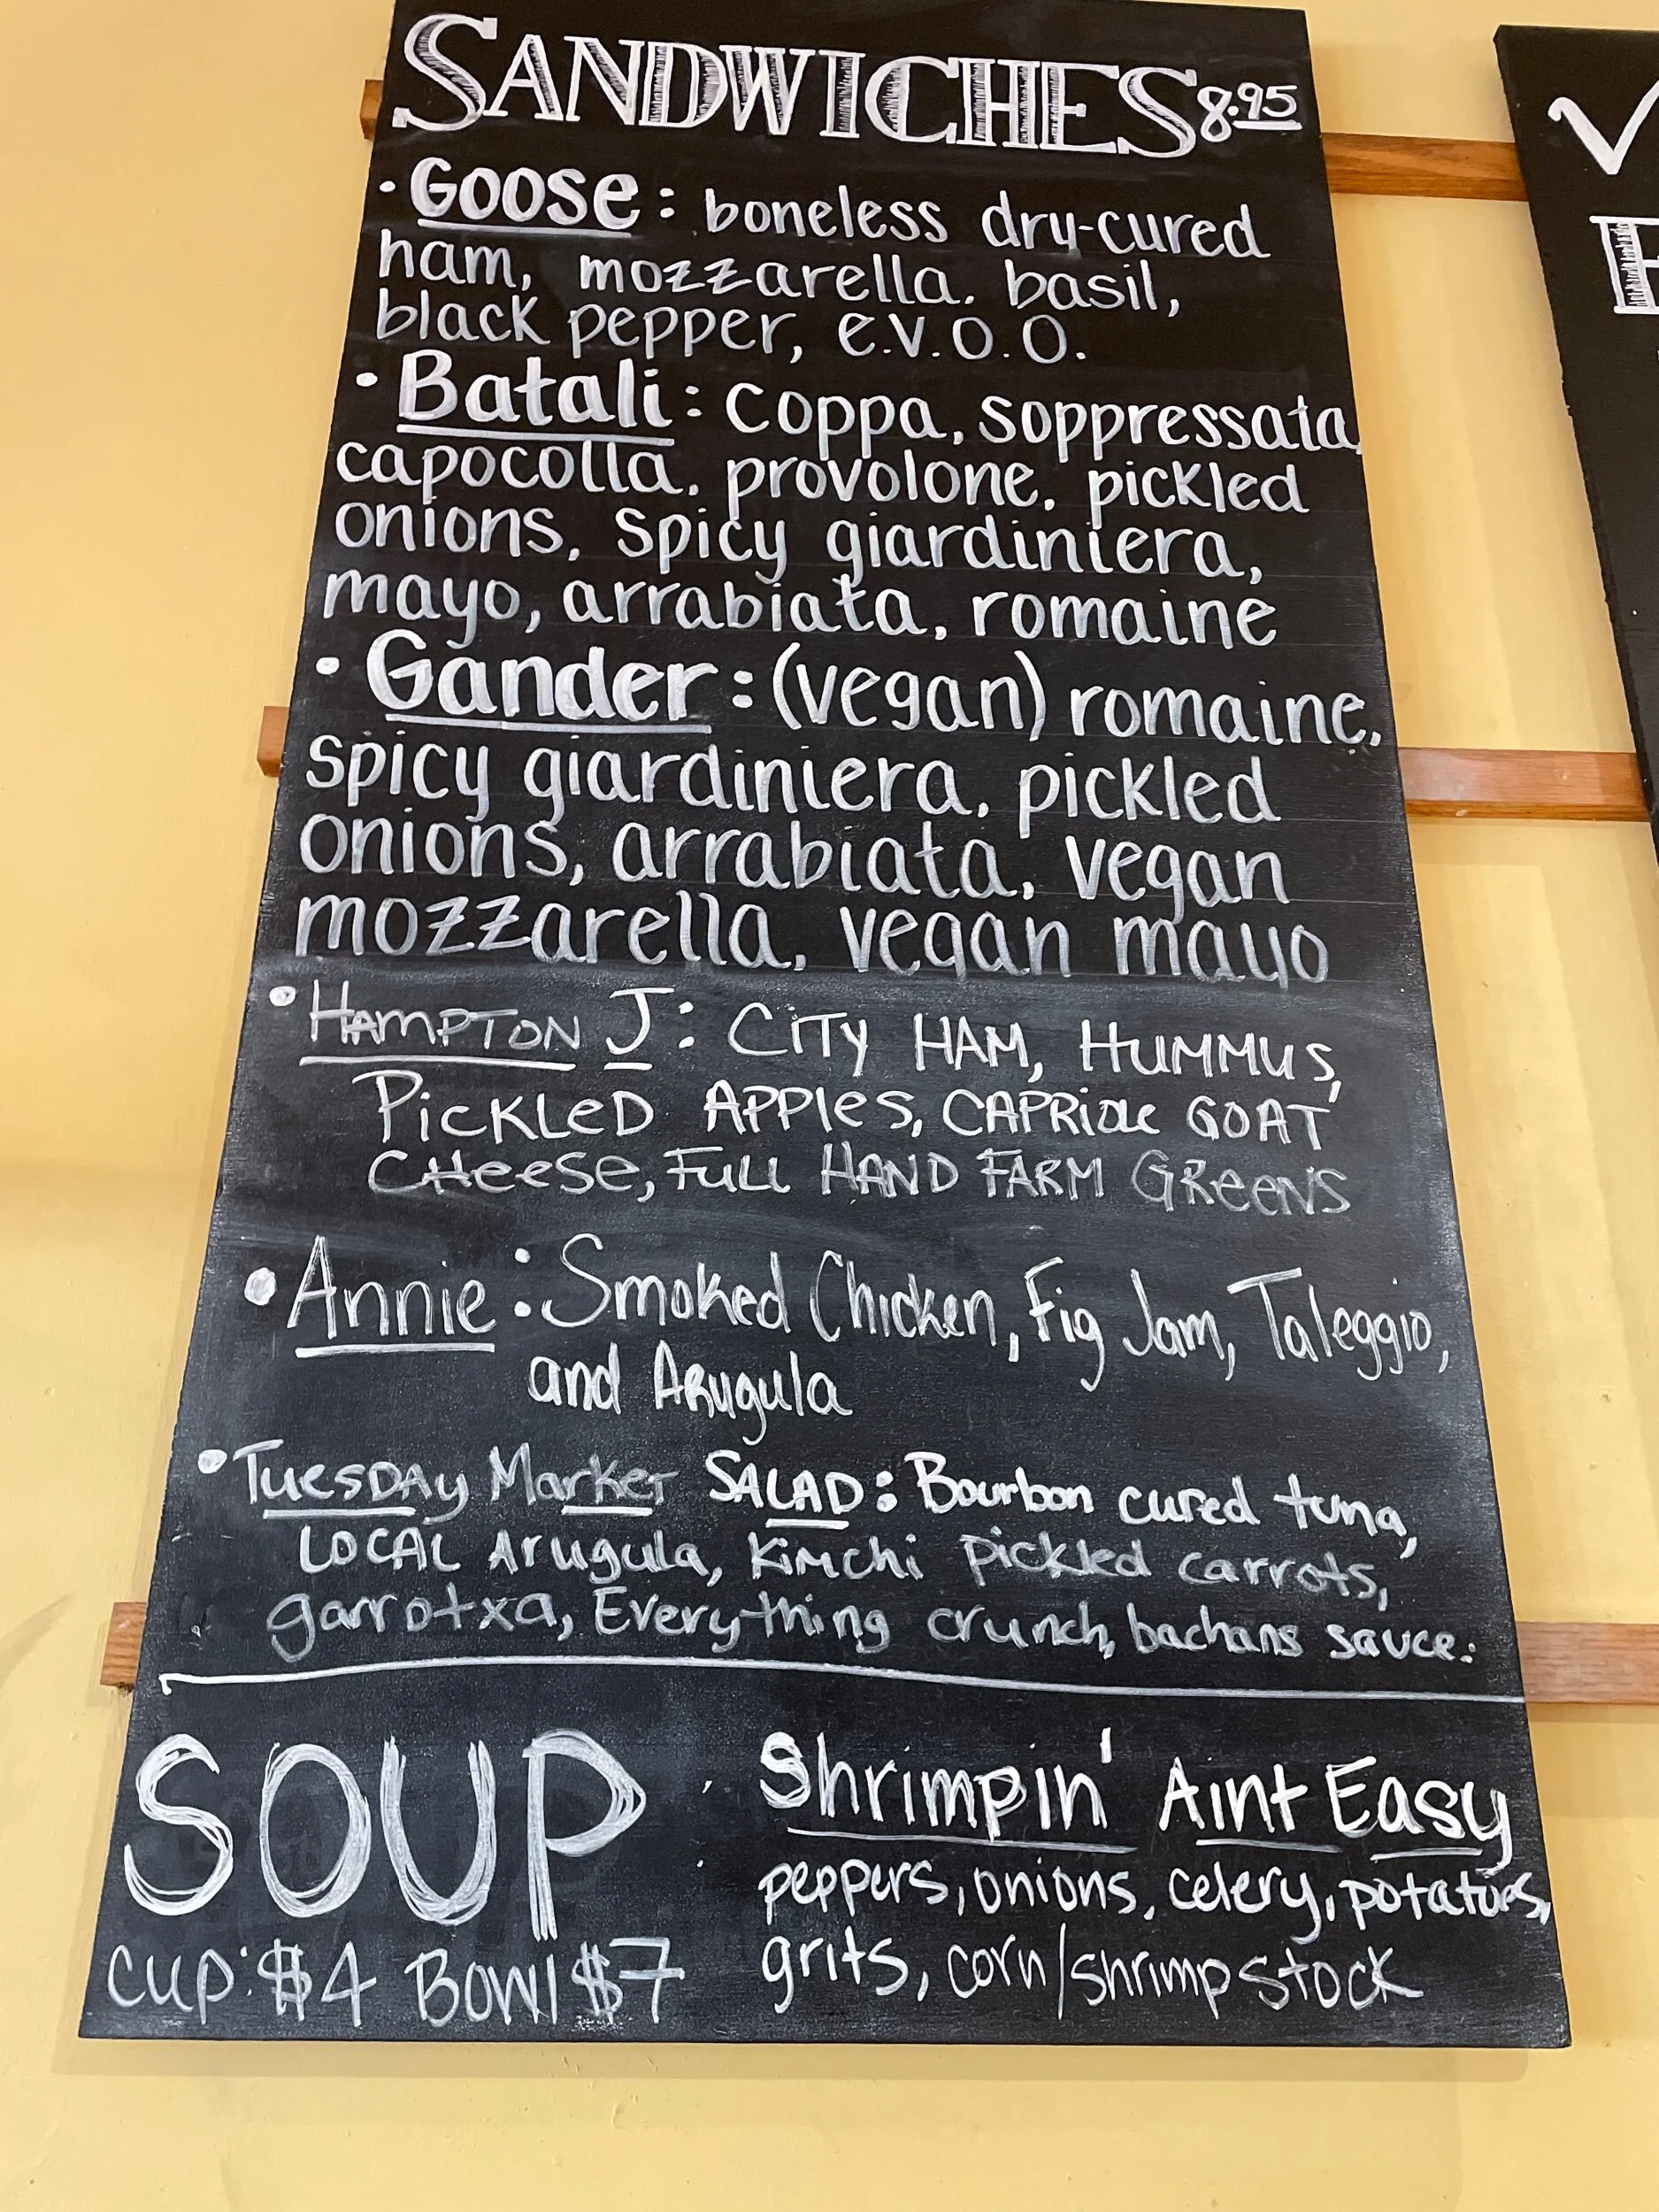 SANDWICHES 8.95
• Goose: boneless dry-cured
ham, mozzarella, basil,
black pepper, e.v.o.o.
• Batali: coppa, soppressata,
capocolla, provolone, pickled
onions, spicy giardiniera,
mayo, arrabiata, romaine
• Gander: (vegan) romaine,
spicy giardiniera, pickled
onions, arrabiata, vegan
mozzarella, vegan mayo
• HAMPTON J: CITY HAM, HUMMUS,
PICKLED APPLES, CAPRIOLE GOAT
CHEESE, FULL HAND FARM GREENS
• Annie: Smoked Chicken, Fig Jam, Taleggio,
and Arugula
• Tuesday Market SALAD: Bourbon cured tuna,
LOCAL Arugula, Kimchi pickled carrots,
garrotxa, Everything crunch, bachans sauce.
SOUP
cup: $4 Bowl $7
Shrimpin' Aint Easy
peppers, onions, celery, potatoes,
grits, corn/shrimp stock